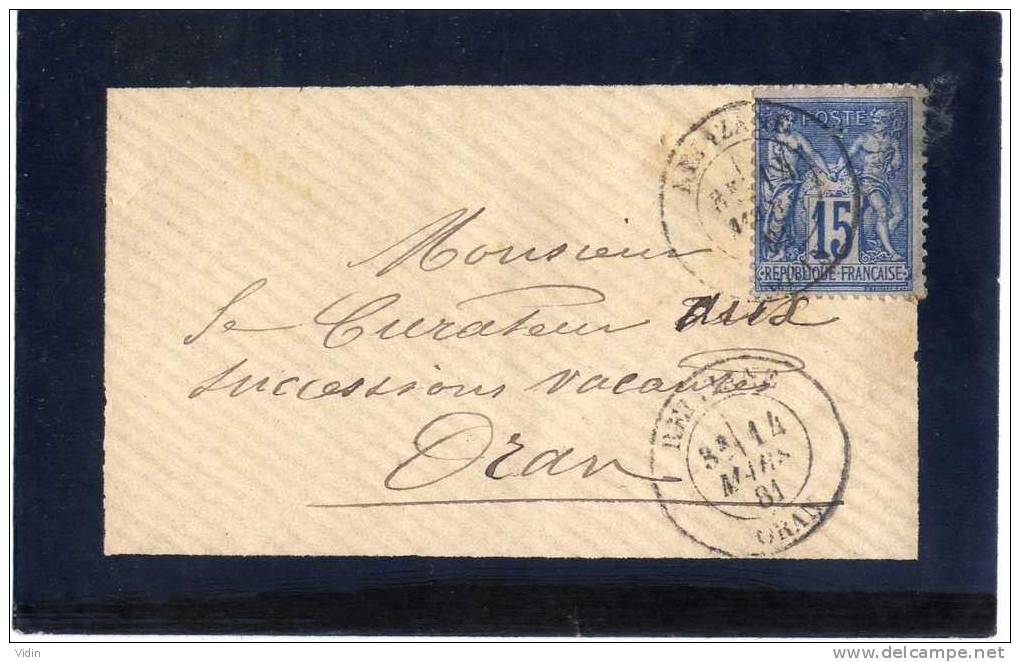 POSTE
15
REPUBLIQUE FRANÇAISE
Monsieur
le Curateur aux
successions vacantes
Oran
3E 14
MARS
81
ORAN
Vidin
delcampe.net